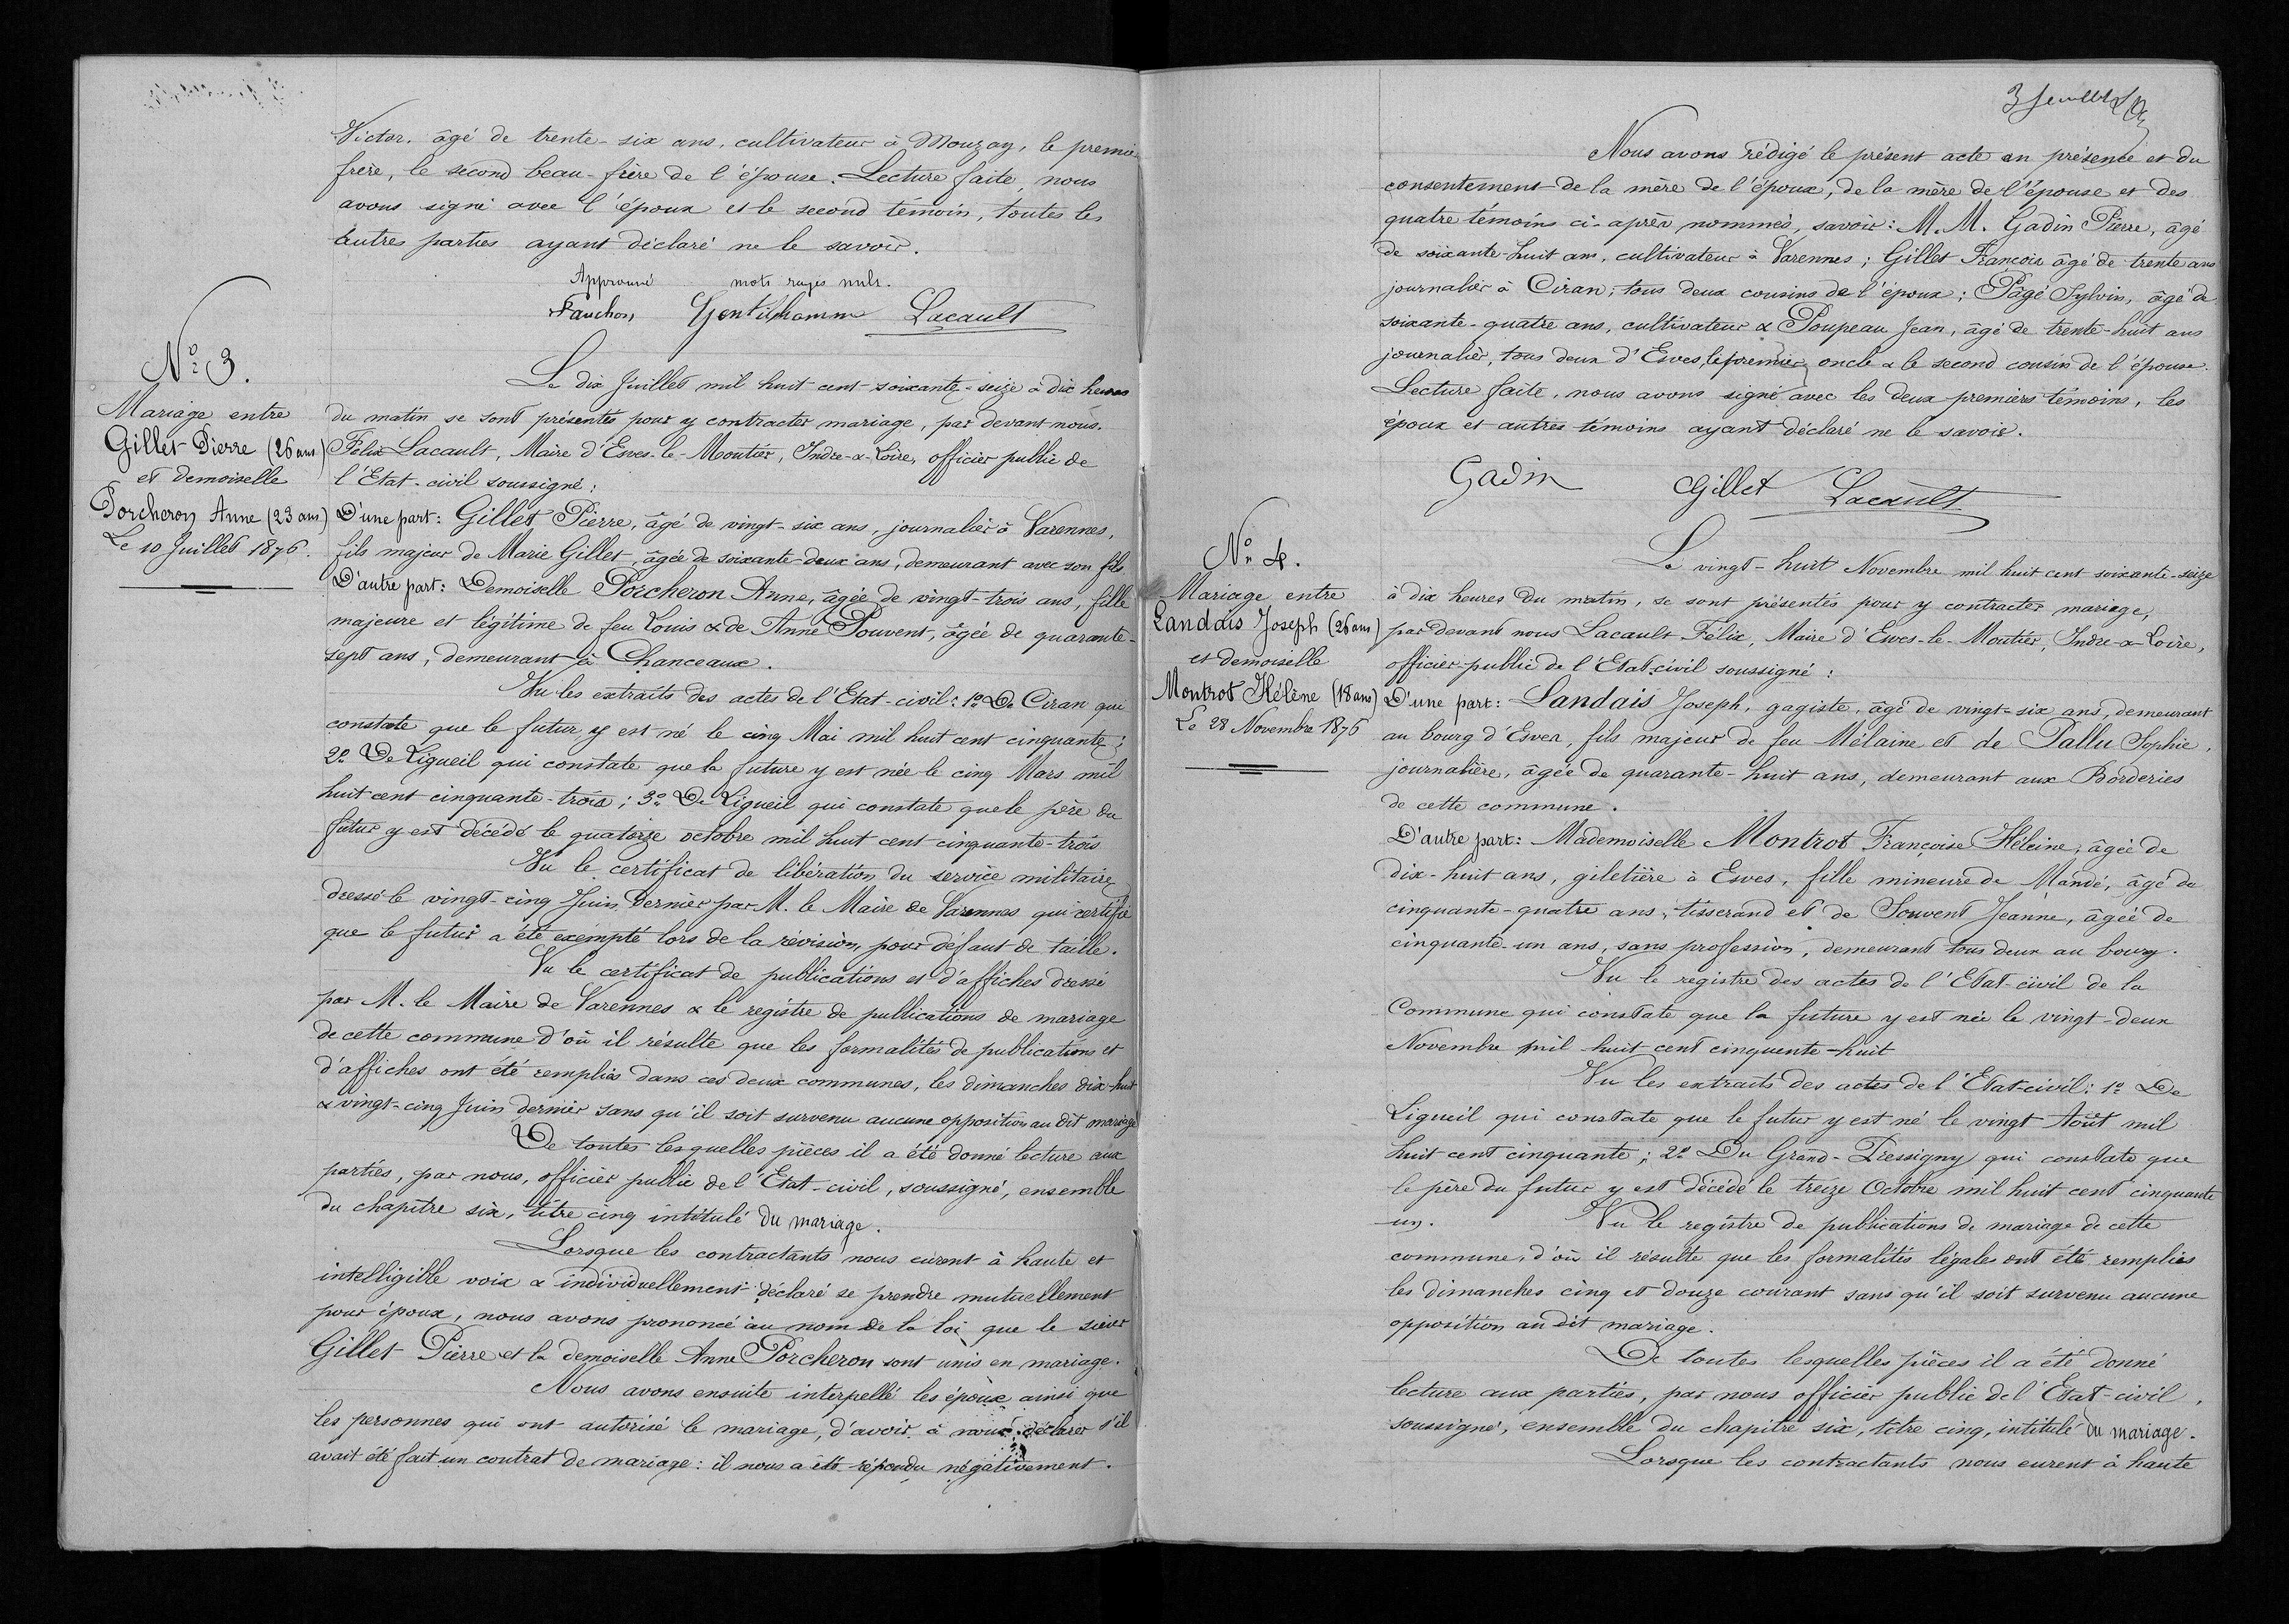 Victor, âgé de trente-six ans, cultivateur à Mouzay, le premier
frère, le second beau-frère de l'épouse. Lecture faite, nous
avons signé avec l'époux et le second témoin, toutes les
autres parties ayant déclaré ne le savoir.
Approuvé mots rayés nuls.
Fauchon Gentilhomme Lacault
N.° 3.
Mariage entre
Gillet Pierre (26 ans)
et demoiselle
Porcheron Anne (23 ans)
Le 10 Juillet 1876.
Le dix Juillet mil huit cent soixante-seize à dix heures
du matin se sont présentés pour y contracter mariage, par devant nous.
Félix Lacault, Maire d'Esves-le-Moutier, Indre-&-Loire, officier public de
l'Etat-civil soussigné:
D'une part: Gillet Pierre, âgé de vingt-six ans, journalier à Varennes,
fils majeur de Marie Gillet, âgée de soixante-deux ans, demeurant avec son fils
D'autre part: Demoiselle Porcheron Anne, âgée de vingt-trois ans, fille
majeure et légitime de feu Louis & de Anne Pouvent, âgée de quarante-
sept ans, demeurant à Chanceaux.
Vu les extraits des actes de l'Etat-civil: 1° De Ciran qui
constate que le futur y est né le cinq Mai mil huit cent cinquante;
2° De Ligueil qui constate que la future y est née le cinq Mars mil
huit cent cinquante-trois; 3° De Ligueil qui constate que le père du
futur y est décédé le quatorze octobre mil huit cent cinquante-trois
Vu le certificat de libération du service militaire
dressé le vingt-cinq Juin dernier par M. le Maire de Varennes qui certifie
que le futur a été exempté lors de la révision, pour défaut de taille.
Vu le certificat de publications et d'affiches dressé
par M. le Maire de Varennes & le registre de publications de mariage
de cette commune d'où il résulte que les formalités de publications et
d'affiches ont été remplies dans ces deux communes, les dimanches dix-huit
& vingt-cinq Juin dernier sans qu'il soit survenu aucune opposition au dit mariage
De toutes lesquelles pièces il a été donné lecture aux
parties, par nous, officier public de l'Etat-civil, soussigné, ensemble
du chapitre six, titre cinq intitulé du mariage.
Lorsque les contractants nous eurent à haute et
intelligible voix & individuellement déclaré se prendre mutuellement
pour époux, nous avons prononcé au nom de la loi que le sieur
Gillet Pierre et la demoiselle Anne Porcheron sont unis en mariage.
Nous avons ensuite interpellé les époux ainsi que
les personnes qui ont autorisé le mariage, d'avoir à nous déclarer s'il
avait été fait un contrat de mariage: il nous a été répondu négativement.
3 feuillet
Nous avons rédigé le présent acte en présence et du
consentement de la mère de l'époux, de la mère de l'épouse et des
quatre témoins ci-après nommés, savoir: M.M. Gadin Pierre, âgé
de soixante-huit ans, cultivateur à Varennes; Gillet François âgé de trente ans
journalier à Ciran; tous deux cousins de l'époux; Pagé Sylvin, âgé de
soixante-quatre ans, cultivateur & Poupeau Jean, âgé de trente-huit ans
journalier, tous deux d'Esves, le premier oncle & le second cousin de l'épouse.
Lecture faite, nous avons signé avec les deux premiers témoins, les
époux et autres témoins ayant déclaré ne le savoir.
Gadin Gillet Lacault
N.° 4.
Mariage entre
Landais Joseph (26 ans)
et demoiselle
Montrot Hélène (18 ans)
Le 28 Novembre 1876
Le vingt-huit Novembre mil huit cent soixante-seize
à dix heures du matin, se sont présentés pour y contracter mariage,
par devant nous Lacault Félix, Maire d'Esves-le-Moutier, Indre-&-Loire,
officier public de l'Etat-civil soussigné:
D'une part: Landais Joseph, gagiste, âgé de vingt-six ans, demeurant
au bourg d'Esves, fils majeur de feu Mélaine et de Pallu Sophie,
journalière, âgée de quarante-huit ans, demeurant aux Borderies
de cette commune.
D'autre part: Mademoiselle Montrot Françoise Héleine, âgée de
dix-huit ans, giletière à Esves, fille mineure de Mandé, âgé de
cinquante-quatre ans, tisserand et de Souvent Jeanne, âgée de
cinquante-un ans, sans profession, demeurant tous deux au bourg.
Vu le registre des actes de l'Etat-civil de la
Commune qui constate que la future y est née le vingt-deux
Novembre mil huit cent cinquente-huit
Vu les extraits des actes de l'Etat-civil: 1° De
Ligueil qui constate que le futur y est né le vingt Août mil
huit cent cinquante; 2° Du Grand-Pressigny qui constate que
le père du futur y est décédé le treize Octobre mil huit cent cinquante
-un. Vu le registre de publications de mariage de cette
commune, d'où il résulte que les formalités légales ont été remplies
les dimanches cinq et douze courant sans qu'il soit survenu aucune
opposition au dit mariage.
De toutes lesquelles pièces il a été donné
lecture aux parties, par nous officier public de l'Etat-civil,
soussigné, ensemble du chapitre six, titre cinq, intitulé du mariage.
Lorsque les contractants nous eurent à haute